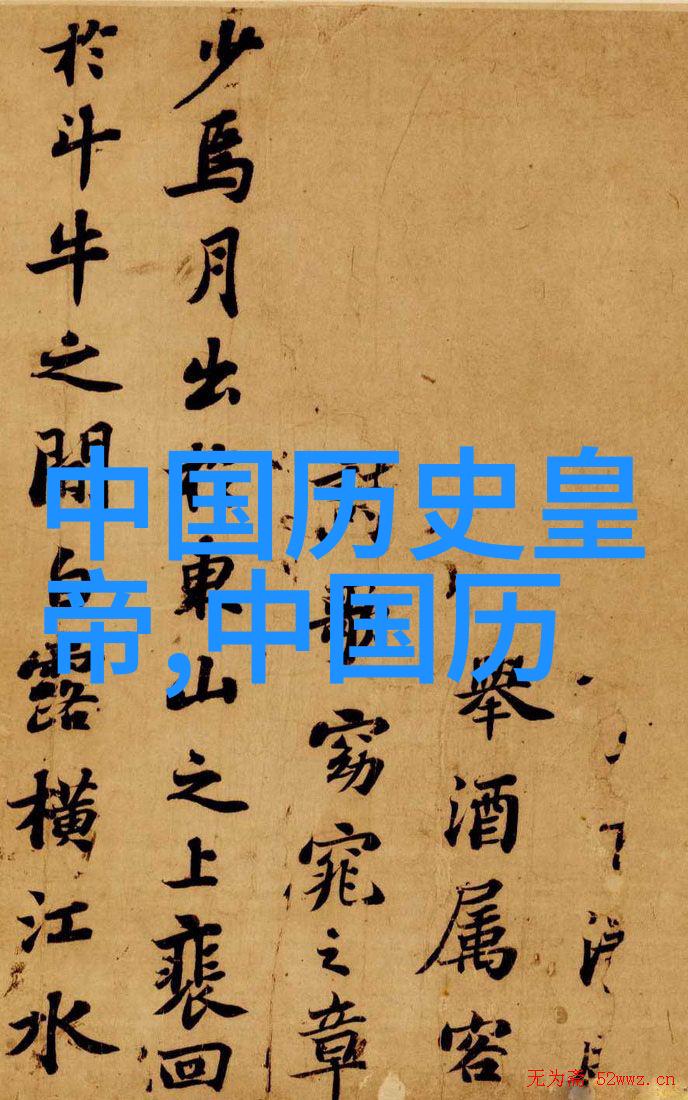 舉酒属客
歌窈窕之章
少焉月出於東山之上裵回
於斗牛之間白露橫江水
中国历史皇
帝,中国历
无为斋 52wwz.cn